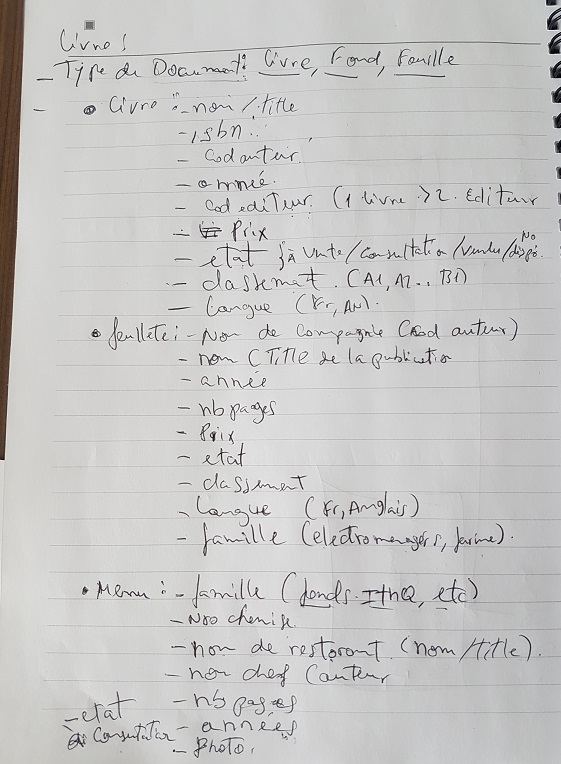 Livres
- Type de Document: Livre, Fond, Feuille
- • Livre : - nom / title
- isbn :
- Cod auteur
- année
- Cod editeur (1 livre > 2. Editeur
- Prix
- etat } à vente / consultation / vendu / No dispo.
- classemat. (A1, A2.. B1)
- Langue (Fr, AN).
• feuillete : - Nom de compagnie (Cod auteur)
- nom (Title de la publication
- année
- nb pages
- Prix
- etat
- classement
- Langue (Fr, Anglais)
- famille (electromenagers, farine).
• Menu : - famille (fonds. ITHQ, etc)
- Nro chemise
- nom de restorant (nom / title).
- nom chef (auteur
- nb pages
- etat
à Consultation - années
- Photo.